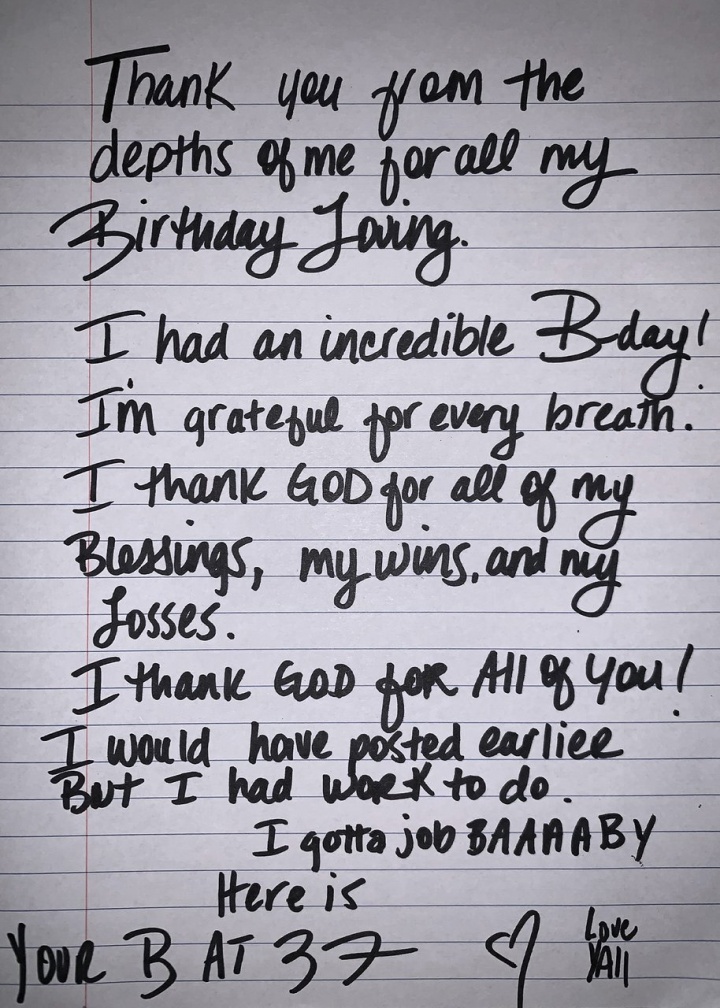 Thank you from the
depths of me for all my
Birthday Loving.
I had an incredible B-day!
I'm grateful for every breath.
I thank GOD for all of my
Blessings, my wins, and my
Losses.
I thank GOD foR All of you!
I would have posted earlieR
But I had woRK to do.
I gotta job BAAAABY
Here is
YouR B AT 37
Love
YAll